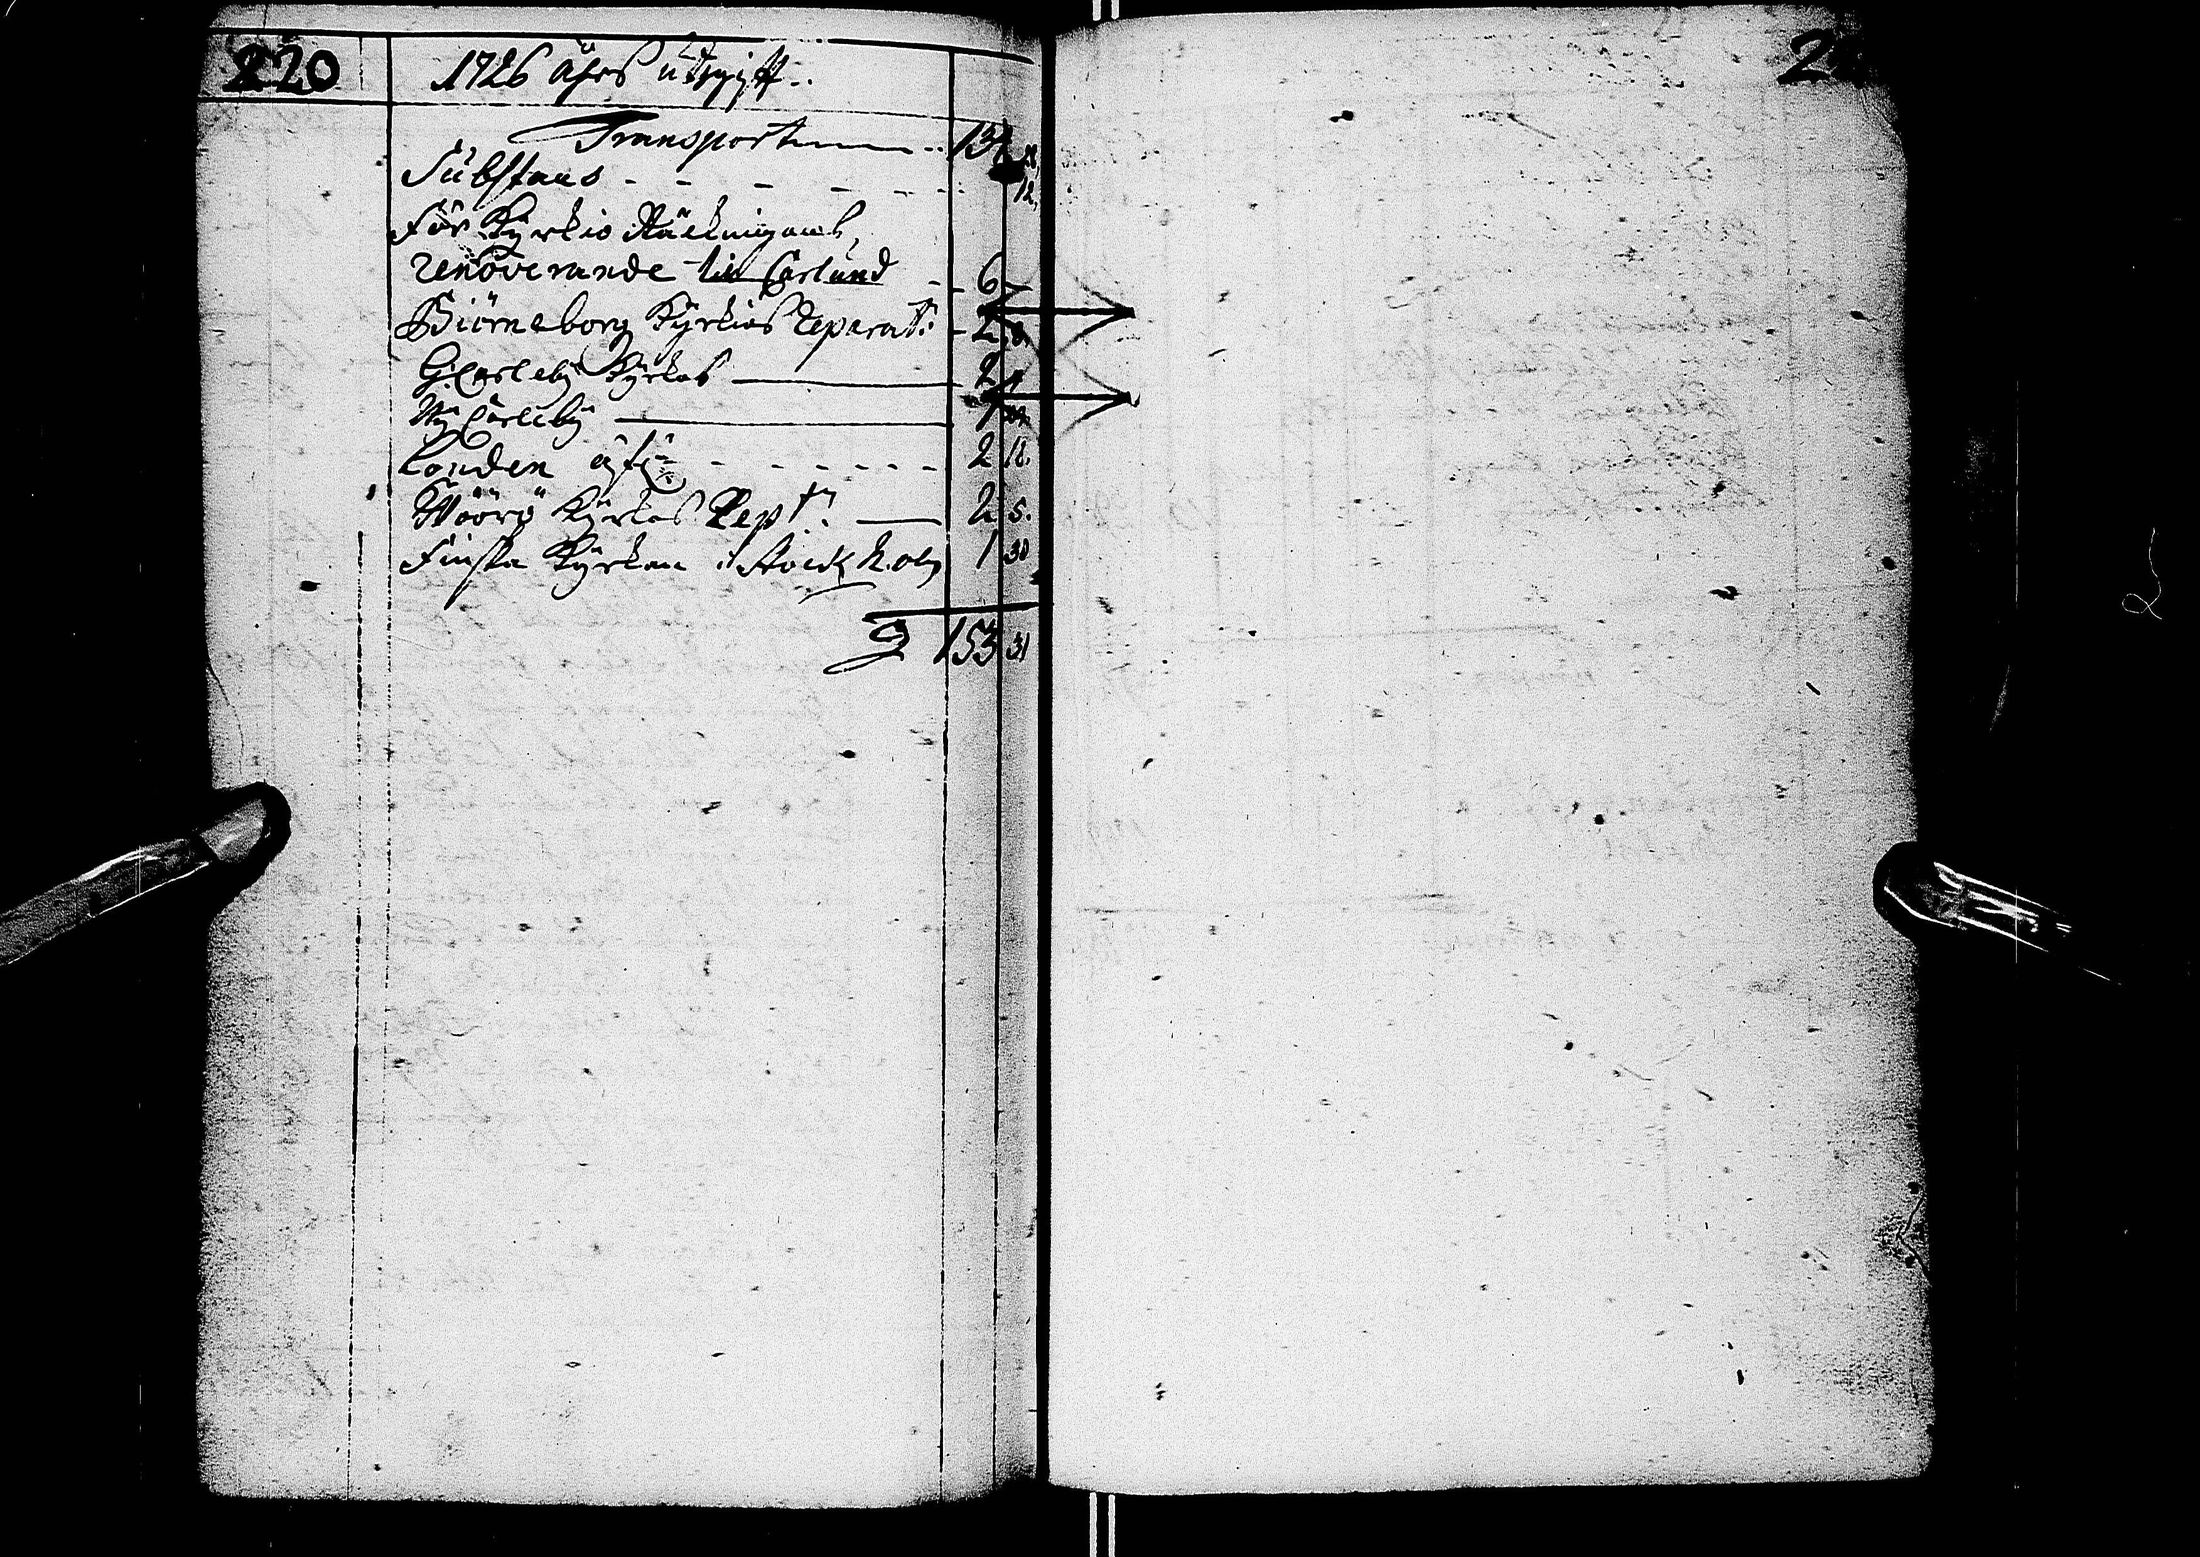 220
1726 åhrs utgifft
Transport 134
Substans 12.
För Kyrkio Räkningarnes
renoverande till Carlund 6 —
Biörneborg Kyrkios Reparat: 2
G: Carleby Kyrkas 2
Ny Carleby 1
London 2 18.
Wöörö Kyrkas Rept: 2 5.
Finska Kyrkan i Stockholm 1 30
153 31